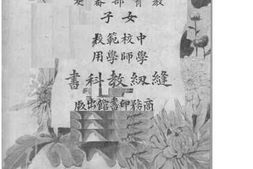 教育部審定
女子
中學校師範學校用
縫紉教科書
商務印書館出版